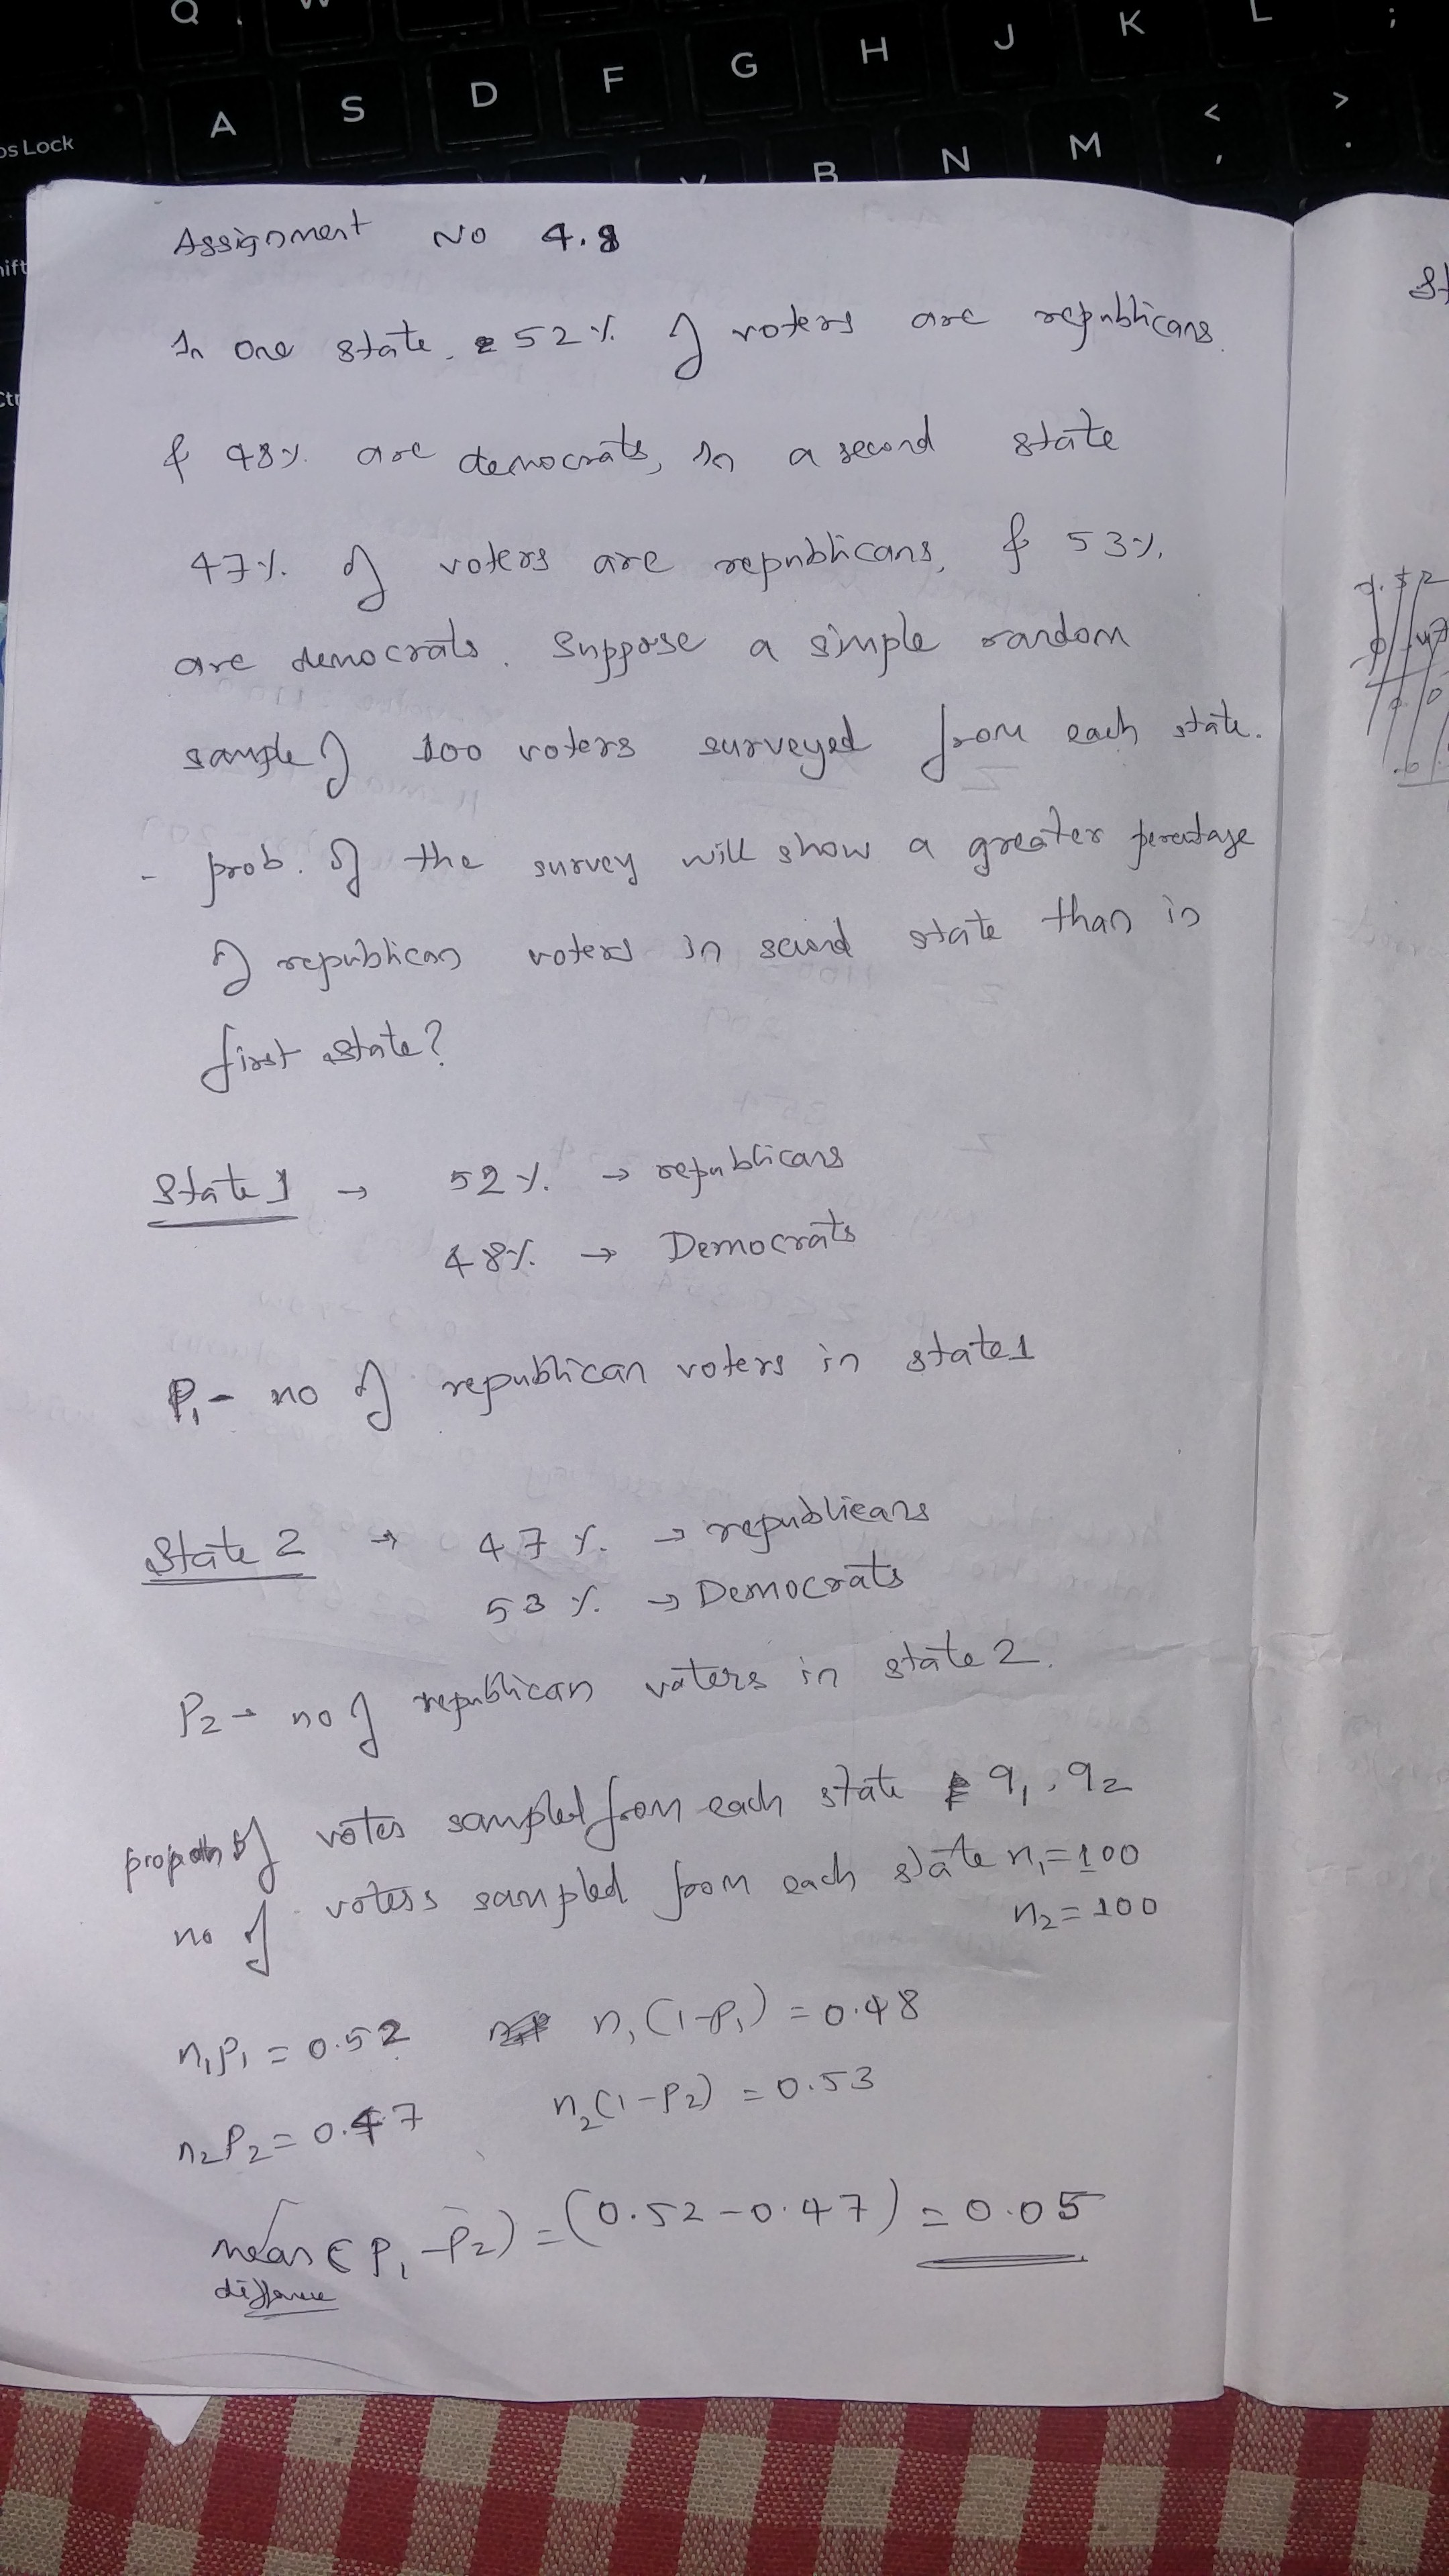 Q W
A S D F G H J K L ;
os Lock
B N M < , > .
hift
Ctr
Assignment No 4.8
In one state 52% of voters are republicans.
& 48% are democrats, In a second state
47% of voters are republicans, & 53%
are democrats. Suppose a simple random
sample of 100 voters surveyed from each state.
- prob. of the survey will show a greater percentage
of republican voters in second state than in
first state?
State 1 → 52% → republicans
48% → Democrats
P₁ - no of republican voters in state 1
State 2 → 47% → republicans
53% → Democrats
P₂ - no of republican voters in state 2.
of votes sampled from each state q₁, q₂
no of voters sampled from each state n₁=100
n₂=100
n₁p₁ = 0.52 n₁(1-P₁) = 0.48
n₂P₂ = 0.47 n₂(1-P₂) = 0.53
mean (P₁ - P₂) = (0.52-0.47) = 0.05